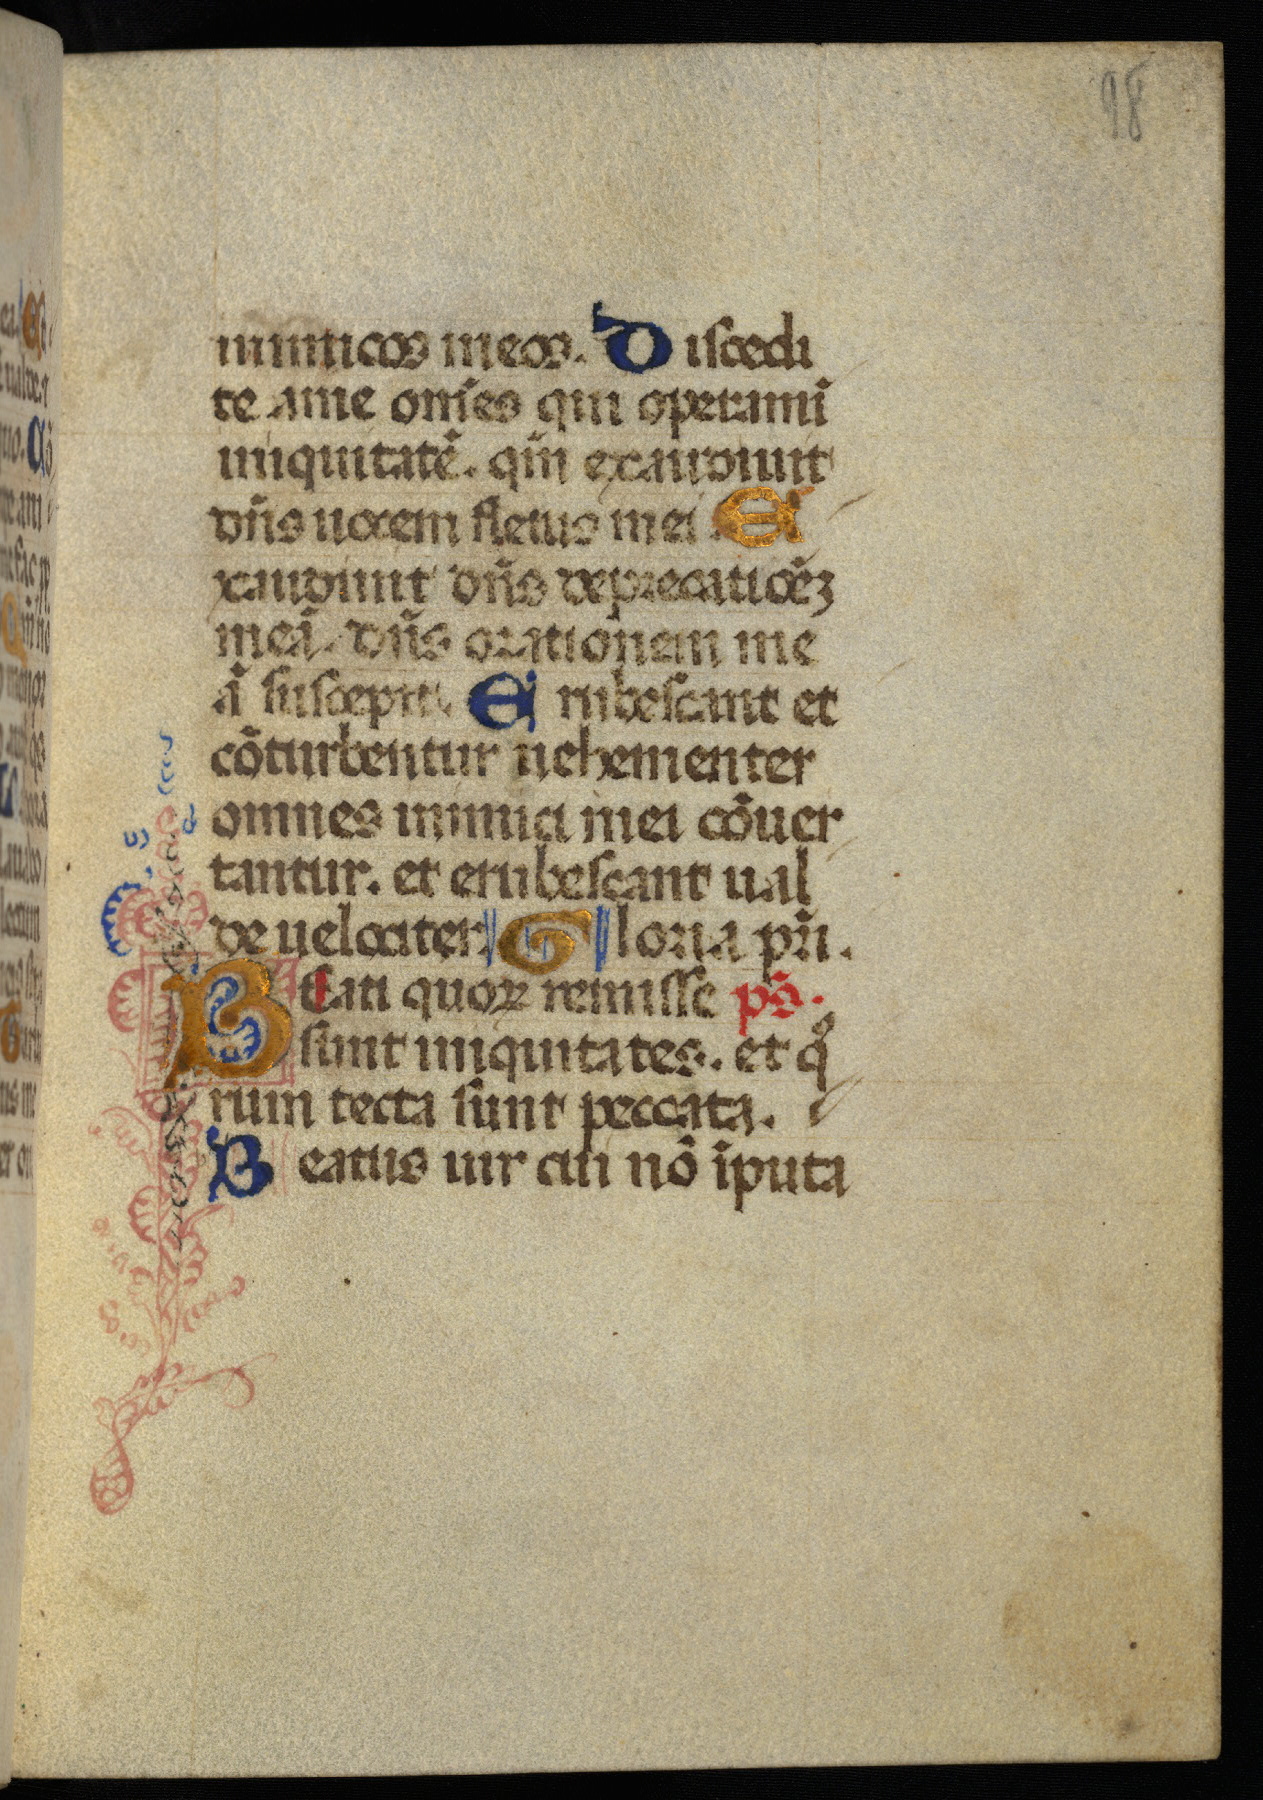 98
inimicos meos. Discedi
te a me om̄es qui operami
iniquitatē. qm̄ exaudiuit
dn̄s uocem fletus mei. E
xaudiuit dn̄s deprecatiōeꝫ
meā. dn̄s orationem me
ā suscepit. Erubescant et
cōturbentur uehementer
omnes inimici mei cōuer
tantur. et erubescant ual
de uelociter. Gloria pr̄i.
Beati quoꝝ remisse ps̄.
sunt iniquitates. et qͦ
rum tecta sunt peccata.
Beatus uir cui nō īputa